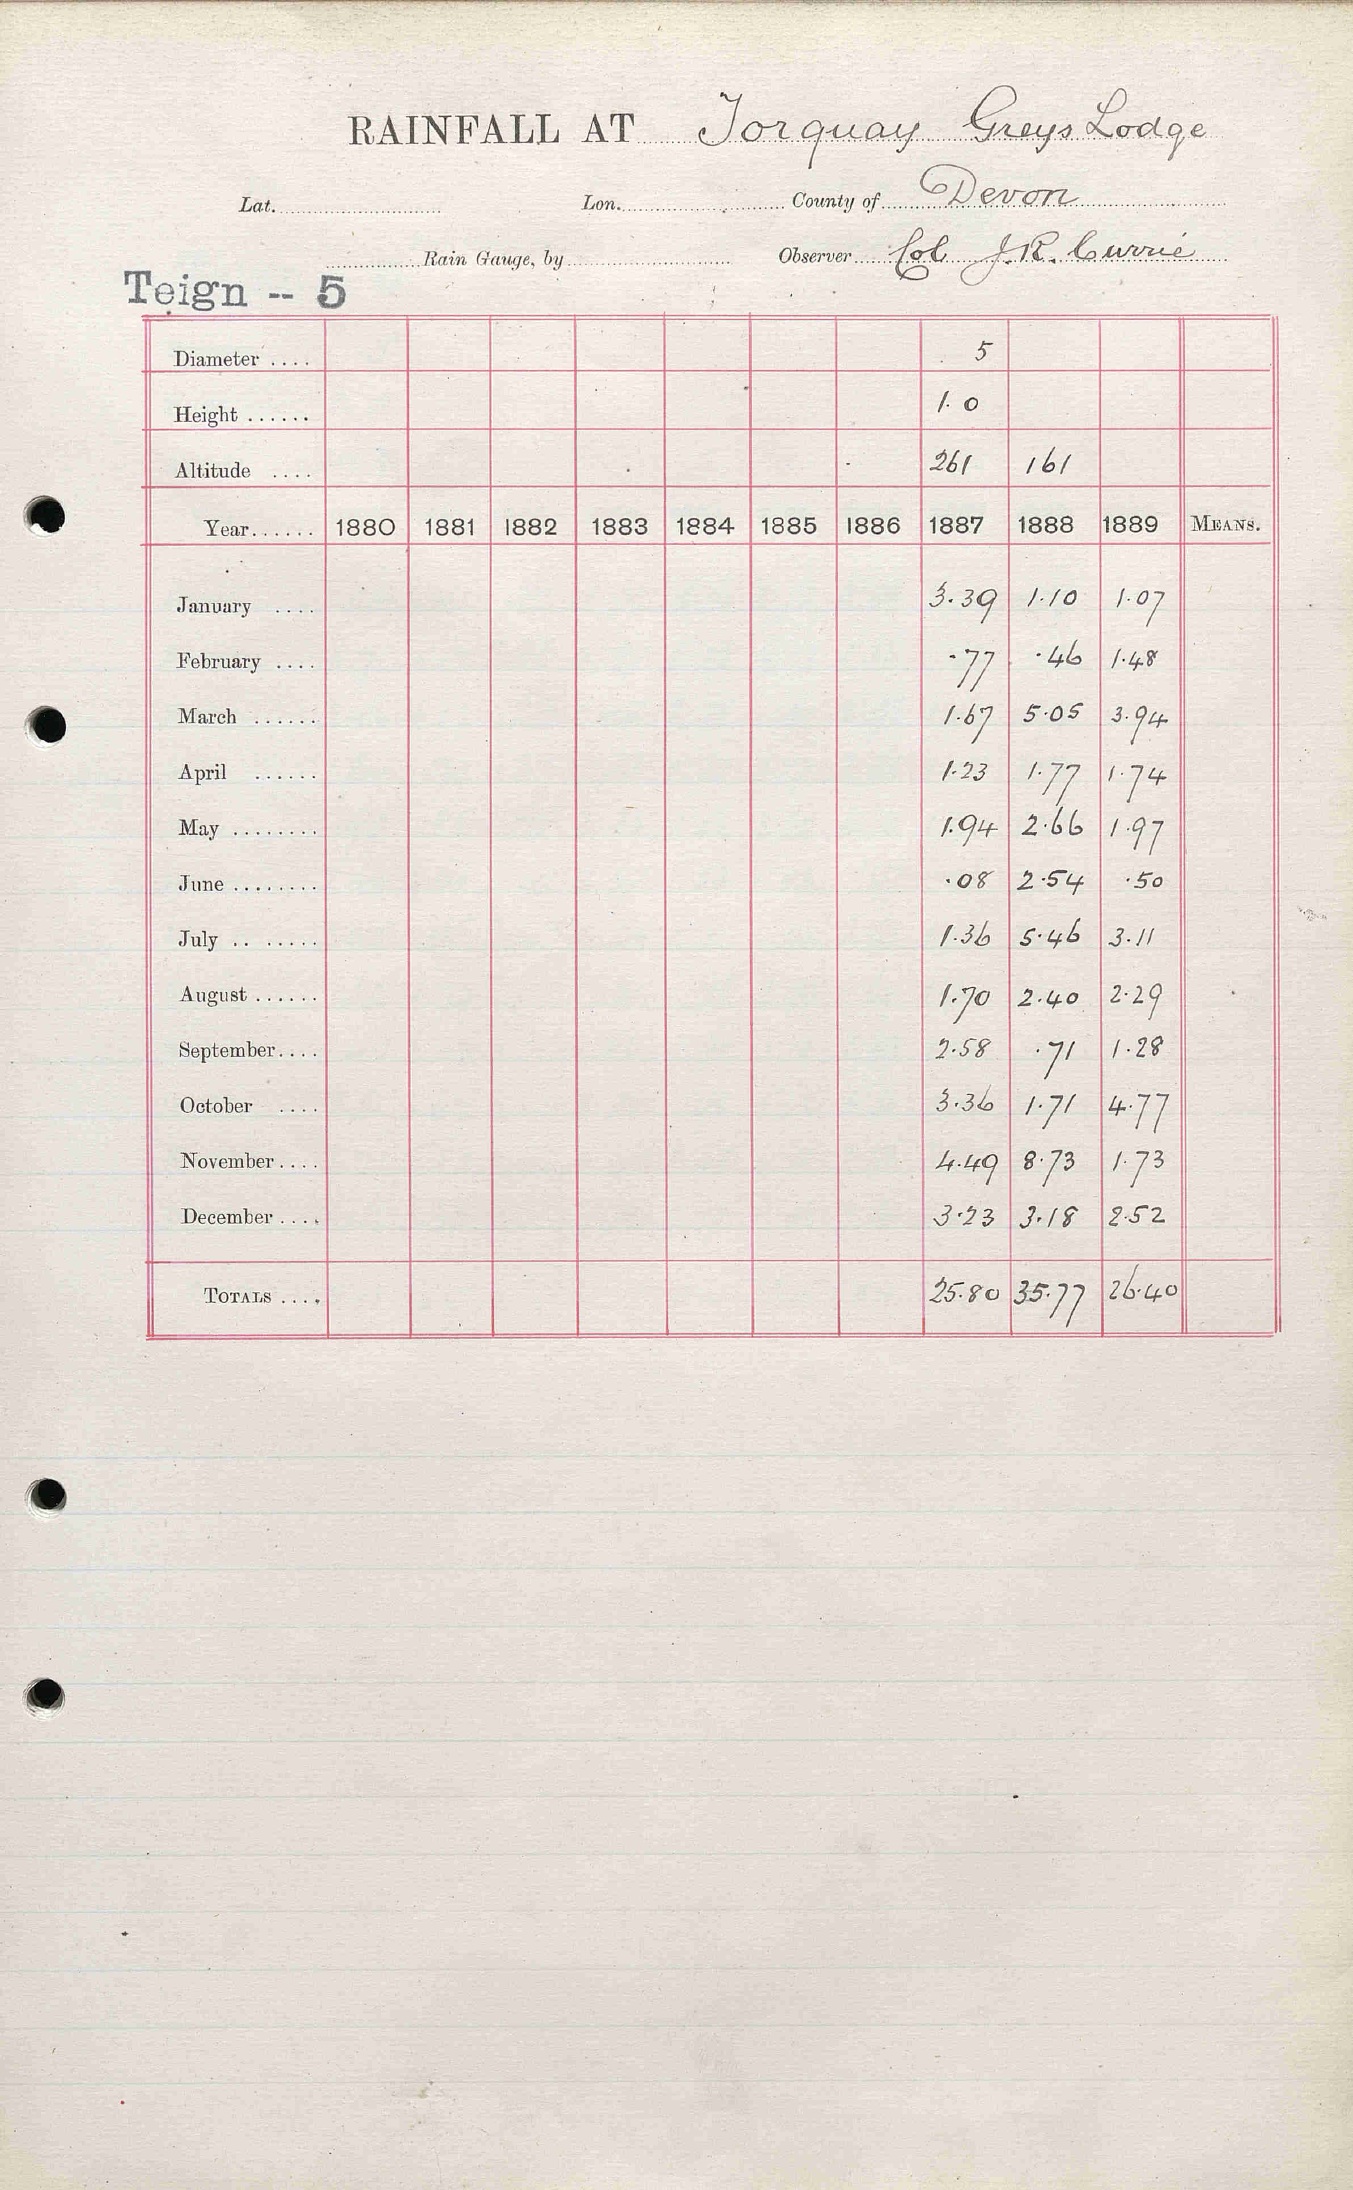 RAINFALL AT Torquay Greys Lodge
Lat. Lon. County of Devon
Rain Gauge, by Observer Col J.R. Currie
Teign -- 5
Diameter .... 5
Height ...... 1.0
Altitude .... 261 161
Year...... 1880 1881 1882 1883 1884 1885 1886 1887 1888 1889 MEANS.
January .... 3.39 1.10 1.07
February .... .77 .46 1.48
March ...... 1.67 5.05 3.94
April ...... 1.23 1.77 1.74
May ........ 1.94 2.66 1.97
June ........ .08 2.54 .50
July .. ..... 1.36 5.46 3.11
August ...... 1.70 2.40 2.29
September.... 2.58 .71 1.28
October .... 3.36 1.71 4.77
November.... 4.49 8.73 1.73
December .... 3.23 3.18 2.52
TOTALS .... 25.80 35.77 26.40